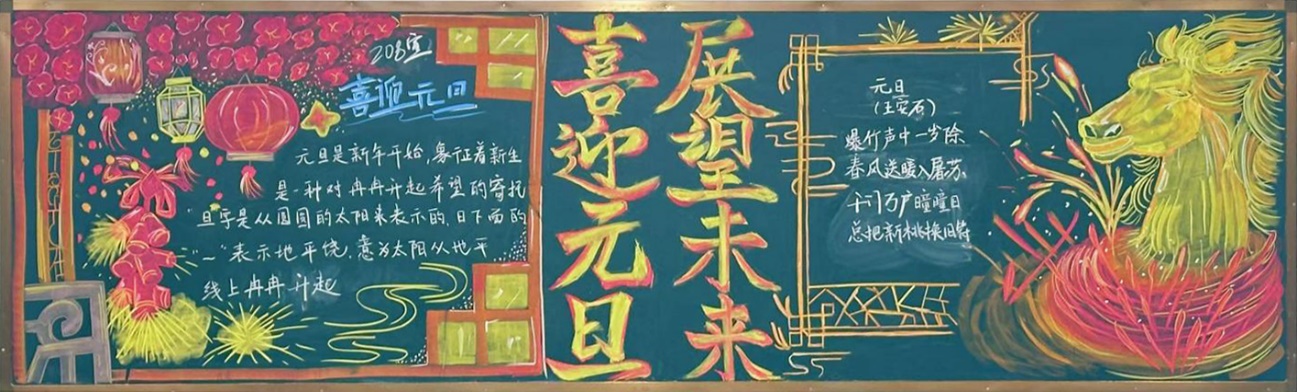 208室
喜迎元旦
元旦是新年开始,象征着新生
是一种对冉冉升起希望的寄托
旦字是从圆圆的太阳来表示的,日下面的
“一”表示地平饶,意为太阳从地平
线上冉冉升起
喜迎元旦
展望未来
元日
(王安石)
爆竹声中一岁除
春风送暖入屠苏
千门万户曈曈日
总把新桃换旧符